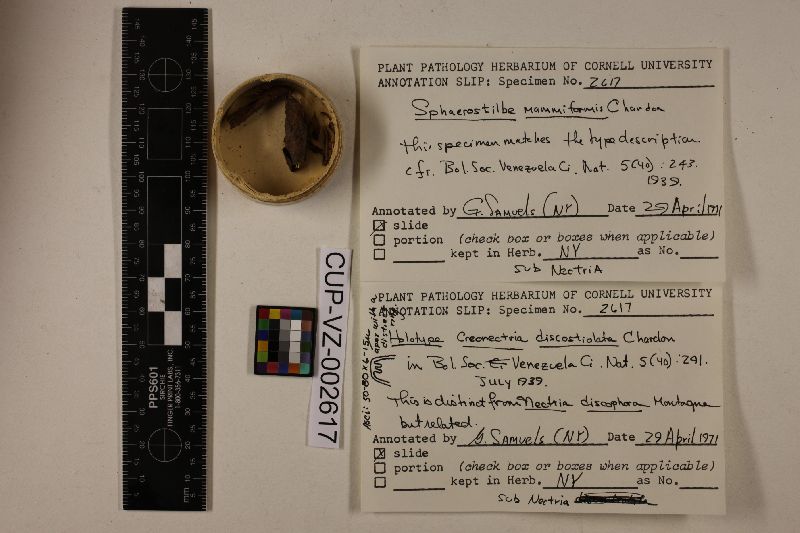 PLANT PATHOLOGY HERBARIUM OF CORNELL UNIVERSITY
ANNOTATION SLIP: Specimen No. 2617
Sphaerostilbe mammiformis Chardon
this specimen matches the type description.
cfr. Bol. Soc. Venezuela Ci. Nat. 5(40): 243.
1939.
Annotated by G. Samuels (NY) Date 29 April 1971
slide
portion (check box or boxes when applicable)
kept in Herb. NY as No.
sub Nectria
PLANT PATHOLOGY HERBARIUM OF CORNELL UNIVERSITY
ANNOTATION SLIP: Specimen No. 2617
Holotype Creonectria discostiolata Chardon
in Bol. Soc. Venezuela Ci. Nat. 5(40): 291.
July 1939.
This is distinct from Nectria discophora Montagne
but related.
Annotated by G. Samuels (NY) Date 29 April 1971
slide
portion (check box or boxes when applicable)
kept in Herb. NY as No.
sub Nectria
Asci: 50-80 x 6-15µ
apex with a
distinct
CUP-VZ-002617
PPS601
SIRCHIE
FINGER PRINT LABS, INC.
1-800-356-7311
mm